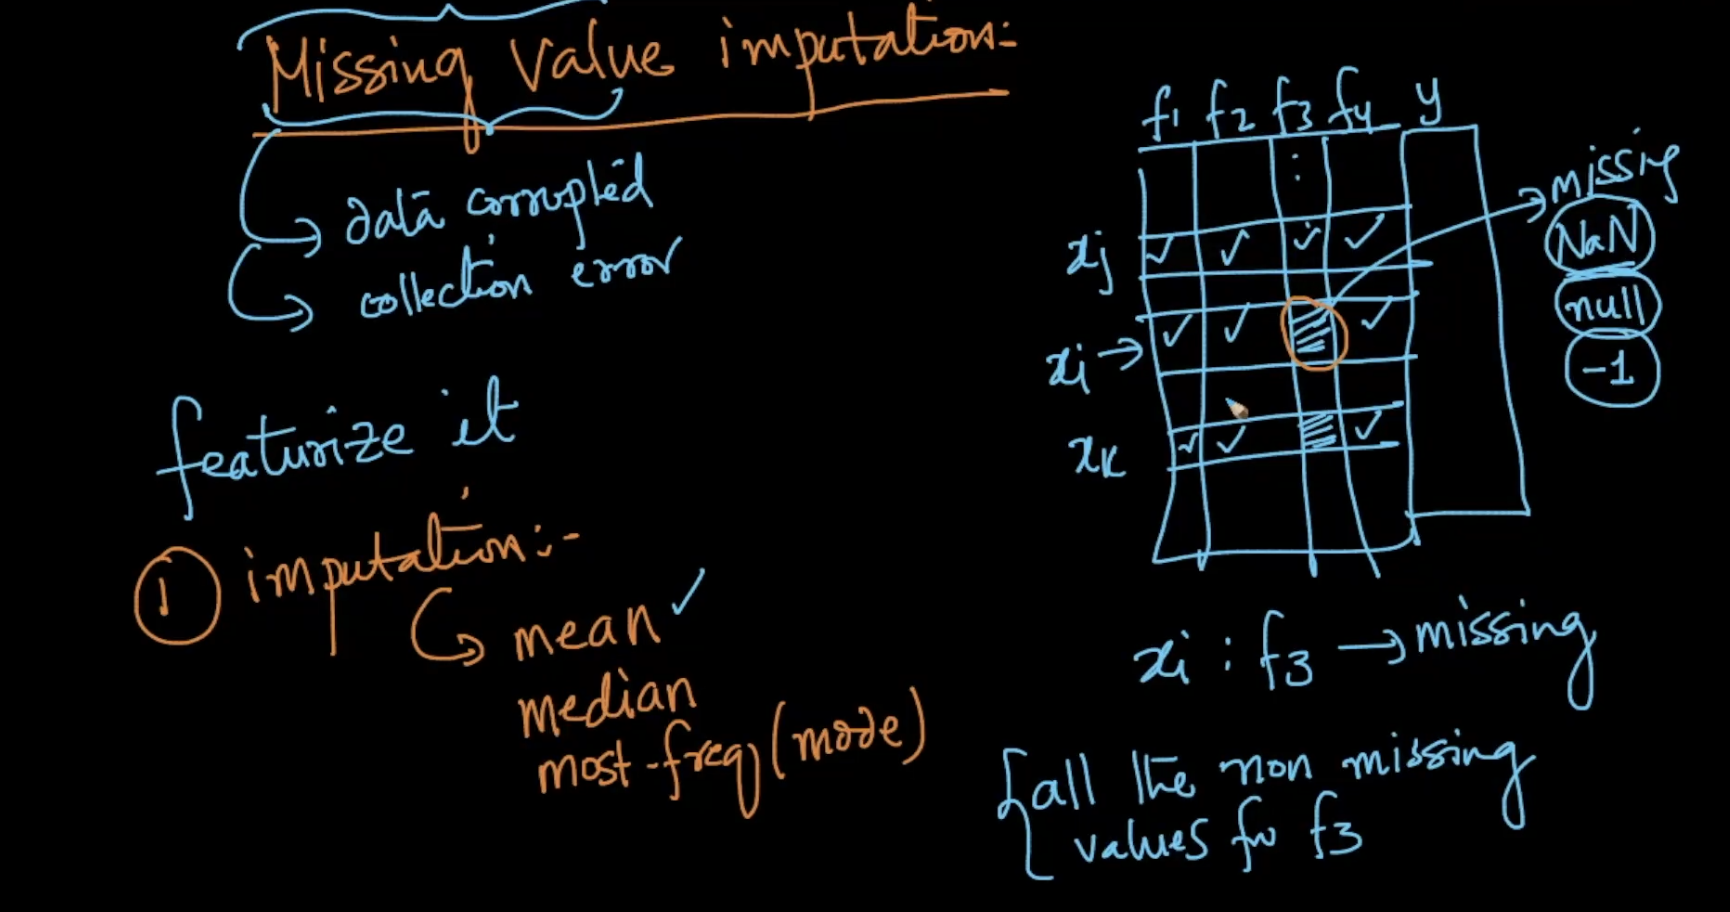 Missing Value imputation:-
data corrupted
collection error
featurize it
1 imputation:-
mean ✓
median
most-freq (mode)
f1 f2 f3 f4 y
missig
NaN
null
-1
xj ✓ ✓ ✓ ✓
xi → ✓ ✓ ✓
xk ✓ ✓ ✓
xi : f3 → missing
all the non missing
values for f3